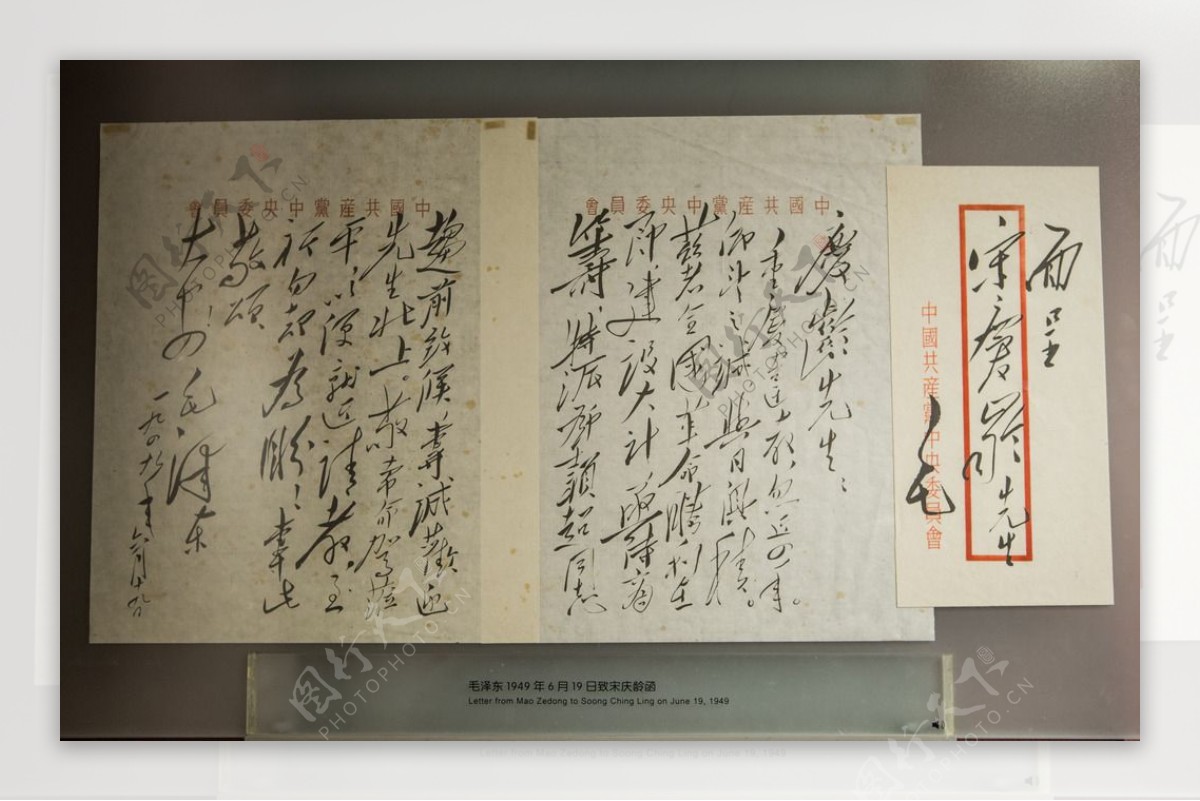 面呈
宋慶齡先生
毛
中國共産黨中央委員會
中國共産黨中央委員會
慶齡先生：
重慶違教，忽近四年。
仰望之誠，與日俱積。
兹者全國革命勝利在
即，建設大計，亟待商
籌，特派鄧頴超同志
中國共産黨中央委員會
趨前致候，專誠歡迎
先生北上。敬希命駕莅
平，以便就近請教，至
祈勿却為盼！專此
敬頌
大安！
毛澤東
一九四九年六月十九日
毛泽东 1949 年 6 月 19 日致宋庆龄函
Letter from Mao Zedong to Soong Ching Ling on June 19, 1949
图行天下
PHOTOPHOTO.CN